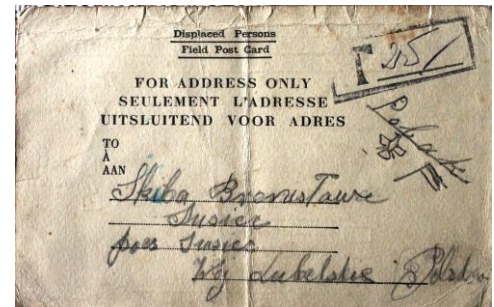 Displaced Persons
Field Post Card
T 25/
FOR ADDRESS ONLY
SEULEMENT L'ADRESSE
UITSLUITEND VOOR ADRES
TO
À
AAN
Skiba Bronusława
Susiec
poes Susiec
Woj Lubelskie Polska